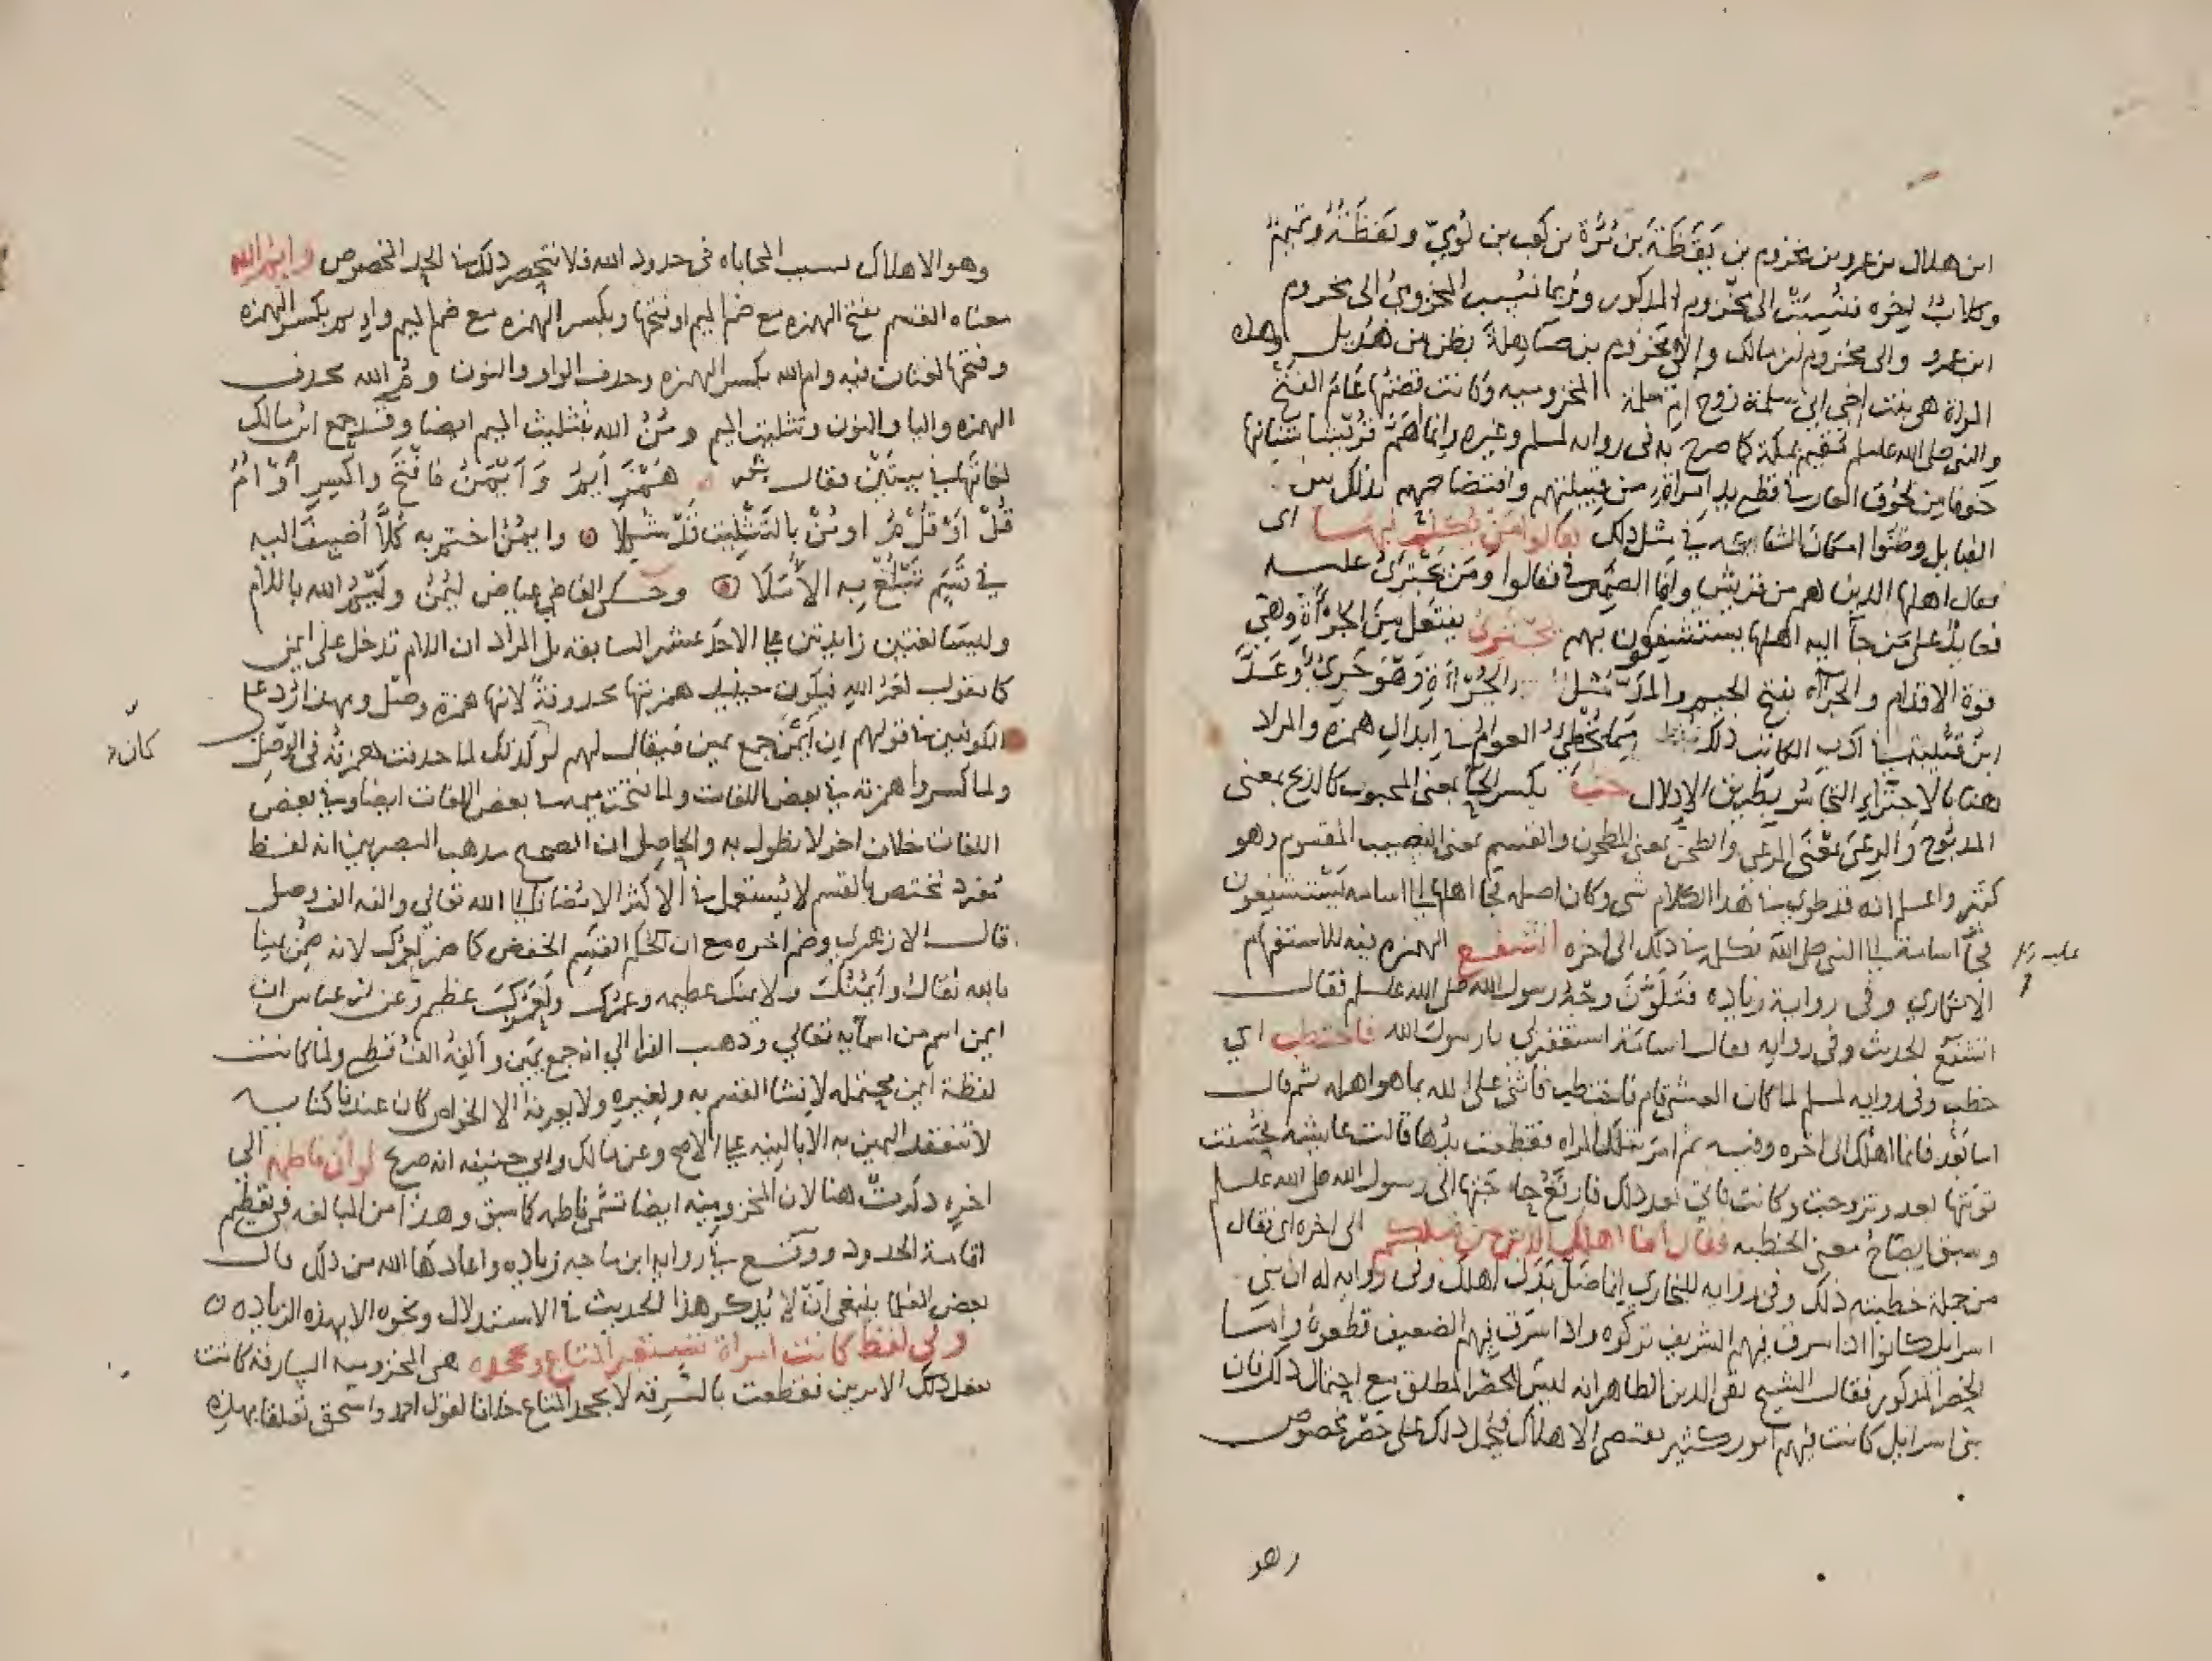 ابن هلال بن عمرو بن مخزوم بن يَقَظَةَ بن مُرَّة بن كعب بن لُؤيّ ويَقَظَةُ وتَيْمٌ
وكلابٌ إخوه فنُسِبَتْ الى مخزوم المذكور وربما نُسِب المخزوميُ الى مخزوم
ابن عمرو والى مخزوم بن مالك والى مخزوم بن صاهلة بطن من هُذيل وهذه
المراة هي بنت اخي ابي سلمة زوج ام سلمة المخزوميه وكانت قصتها عَامَ الفتح
والنبي صلى الله عليه وسلم مقيم بمكة كما صرح به في روايه لمسلم وغيره وانما اهمت قريشا شانها
خوفا من لحوق العار بها قطع يد امراة من قبيلتهم وافتضاحهم بذلك بين
القبايل وظنّوا امكان الشفاعه في مثل ذلك فقالوا من يكلم فيها اى
فقال اهلها الذين هم من قريش واما الضمير في فقالوا ومن يجترئ عليه
فعايدٌ على من جآ اليه اهلها يستشفعون بهم يجترئ يفتعل من الجرأة وهي
قوة الاقدام والجرآه بفتح الجيم والمد مثل الجُرْأة وهو جَريءٌ وعَدَّ
ابنُ قتيبة في ادب الكاتب ذلك مما يُخطِئُ العوامُ في ابدال همزه والمراد
هنا بالاجتراءِ التجاسُر بطريق الادلال حب بكسر الحا بمعنى المحبوب كالذبح بمعنى
المذبوح والرعى بمعنى المرعى والطحن بمعنى المطحون والقسم بمعنى النصيب المقسوم وهو
كثير واعلم انه قد طوى في هذا الكلام شى وكان اصله فجا اهلها الى اسامه يستشفعون
فجآ اسامة الى النبي صلى الله فكلمه في ذلك الى اخره اتشفع الهمزه فيه للاستفهام
عليه
الانكاري وفى رواية زياده فتَلَوَّنَ وجه رسول الله صلى الله عليه وسلم فقال
اتشفعُ الحديث وفى روايه فقال اسامَة استغفرلي يارسول الله فاختطب اي
خطب وفى روايه لمسلم لما كان العشي قام فاختطب فاثنى على الله بما هو اهله ثم قال
اما بَعْد فانما اهلك الى اخره وفيه ثم امر بتلك المراه فقطعت يدُها قالت عايشه فحسُنت
توبَتُها بعد وتزوجت وكانت تاتى بعد ذلك فارفعُ حاجتها الى رسول الله صلى الله عليه وسلم
وسبق ايضاحُ معنى الخطبه فقال انما اهلك الذين من قبلكم الى اخره اى فقال
من جملة خطبته ذلك وفى روايه للبخاري انما ضلَّ بَدَل اهلك وفى روايه له ان بني
اسرايل كانوا اذا سرق فيهم الشريف تركوه واذا سرق فيهم الضعيف قطعوهُ واما
الحصرُ المذكور فقال الشيخ تقى الدين الظاهر انه ليس الحصر المطلق مع احتمال ذلك فان
بنى اسرايل كانت فيهم امور كثيره تقتضى الاهلاك فيُحمل ذلك على حصرٍ مخصوصٍ
وهو
وهو الاهلاك بسبب المحاباه فى حدود الله فلا ينحصر ذلك في الحد المخصوص وايم الله
معناه القسم بفتح الهمزه مع ضم الميم او فتحها وبكسر الهمزه مع ضم الميم وايمن بكسر الهمزه
وفتحها لغتان فيه وام الله بكسر الهمزه وحذف الواو والنون ومُ الله بحذف
الهمزه واليا والنون وتثليث الميم ومُنُ الله بتثليث الميم ايضا وقد جمع ابن مالك
لغاتها في بيتَيْن فقال هَمْزَ اَيمُ وَ اَيْمَنُ فَافْتَحْ واكْسِرْ أوْ اَمُ
قُلْ اَوْ قُلْ مُ او مُنْ بالتَثْلِيث قدْ شُكِلا وايمُنُ اختم به كُلاً أضيفَ اليه
في قَسَمٍ تَبْلُغْ به الأَمَلا وحكى القاضي عياض ليمُنُ وليْمُ الله باللام
وليستا لغتين زايدتين على الاحد عشر السابقه بل المراد ان اللام تدخل على ايمن
كما يقول لعَمْرُ الله فيكون حينيذ همزتها محذوفةً لانها همزة وصل وبهذا رُد على
الكوفيين في قولهم ان أيْمُن جمع يمين فيقال لهم لو كان كذلك لما حذفت همزتُه فى الوصْلِ
كانَ
ولما كسروا همزته في بعض اللغات ولما فتحت ميمه في بعض اللغات ايضا وفي بعض
اللغات خلاف اخر لا نطول به والحاصل ان الصحيح مذهب البصريين انه لفظ
مُفرد مختص بالقسم لا يُستعمل في الاكثر الا مُضافًا الى الله تعالي والفه الف وصل
قال الازهري وضم اخره مع ان حُكم القسَم الخفض كما ضم لعَمرُك لانه ضُمِّن يمينا
تابعه فقال وأَيمُنُك ولايمنك عظيمه وعمرُك ولعَمرُك عظيم وعن ابن عباس ان
ايمن اسم من اسمآيه تعالي وذهب الفرا الي انه جمع يمين وألِفهُ الفُ قطع ولما كانت
لفظة ايمن محتمله لانشا القسم به ولغيره ولا يعرفه الا الخواص كان عندنا كنايه
لا تنعقد اليمين به الا بالنيه على الاصح وعن مالك وابي حنيفه انه صريح لو أن فاطمه الي
اخره ذكرت هنا لان المخزوميه ايضا تسمّى فاطمه كما سبق وهذا من المبالغه فى تعظيم
اقامة الحدود ووقع في روايه ابن ماجه زياده واعاذها الله من ذلك قال
بعض العلما ينبغى أن لا يُذكر هذا الحديث في الاستدلال ونحوه الا بهذه الزياده
وفي لفظ كانت امراة تستعير المتاع وتجحده هى المخزوميه السارقة كانت
تفعل ذلك الامرين فقطعت بالسَّرِقه لا بجحد المتاع خلافا لقول احمد واسحق تعلقا بهذه